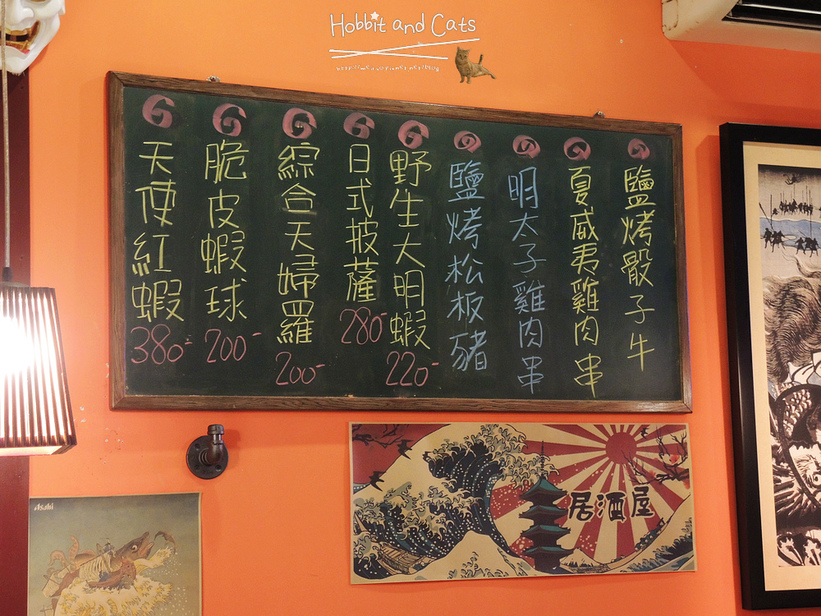 Hobbit and Cats
の
鹽烤骰子牛
の
夏威夷雞肉串
の
明太子雞肉串
の
鹽烤松板豬
6
野生大明蝦
220-
6
日式披薩
280-
6
綜合天婦羅
200-
6
脆皮蝦球
200-
6
天使紅蝦
380-
居酒屋
Asahi